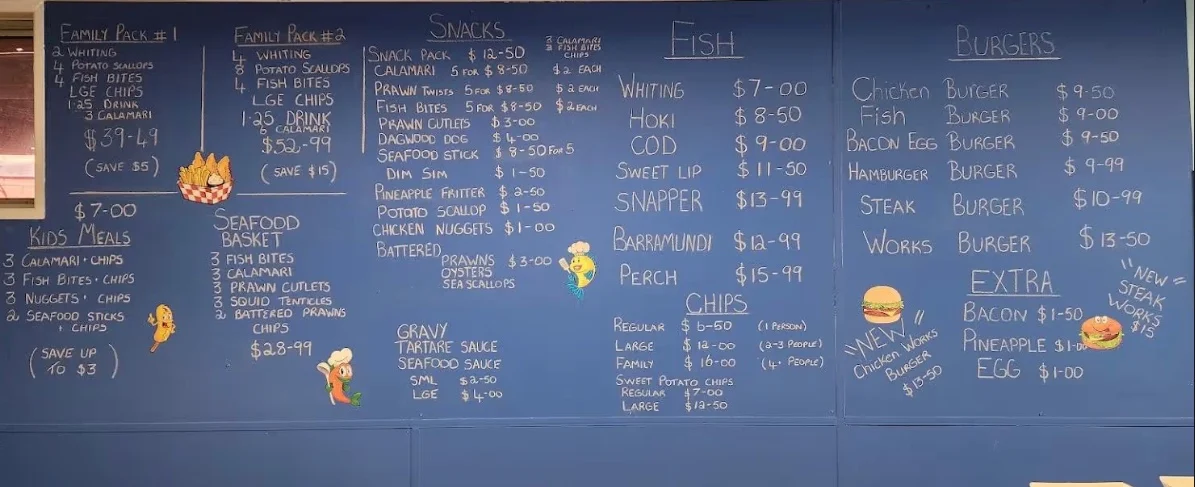 FAMILY PACK #1
2 WHITING
4 POTATO SCALLOPS
4 FISH BITES
LGE CHIPS
1-25 DRINK
3 CALAMARI
$39-49
(SAVE $5)
FAMILY PACK #2
4 WHITING
8 POTATO SCALLOPS
4 FISH BITES
LGE CHIPS
1-25 DRINK
6 CALAMARI
$52-99
(SAVE $15)
$7-00
KIDS MEALS
3 CALAMARI + CHIPS
3 FISH BITES + CHIPS
3 NUGGETS + CHIPS
2 SEAFOOD STICKS
+ CHIPS
(SAVE UP
TO $3)
SEAFOOD
BASKET
3 FISH BITES
3 CALAMARI
3 PRAWN CUTLETS
3 SQUID TENTICLES
2 BATTERED PRAWNS
CHIPS
$28-99
SNACKS
SNACK PACK $12-50 3 CALAMARI
3 FISH BITES
CHIPS
CALAMARI 5 FOR $8-50 $2 EACH
PRAWN TWISTS 5 FOR $8-50 $2 EACH
FISH BITES 5 FOR $8-50 $2 EACH
PRAWN CUTLETS $3-00
DAGWOOD DOG $4-00
SEAFOOD STICK $8-50 FOR 5
DIM SIM $1-50
PINEAPPLE FRITTER $2-50
POTATO SCALLOP $1-50
CHICKEN NUGGETS $1-00
BATTERED
PRAWNS $3-00
OYSTERS
SEA SCALLOPS
GRAVY
TARTARE SAUCE
SEAFOOD SAUCE
SML $2-50
LGE $4-00
FISH
WHITING $7-00
HOKI $8-50
COD $9-00
SWEET LIP $11-50
SNAPPER $13-99
BARRAMUNDI $12-99
PERCH $15-99
CHIPS
REGULAR $6-50 (1 PERSON)
LARGE $12-00 (2-3 PEOPLE)
FAMILY $16-00 (4+ PEOPLE)
SWEET POTATO CHIPS
REGULAR $7-00
LARGE $12-50
BURGERS
Chicken BURGER $9-50
Fish BURGER $9-00
BACON EGG BURGER $9-50
HAMBURGER BURGER $9-99
STEAK BURGER $10-99
WORKS BURGER $13-50
"NEW"
Chicken WORKS
BURGER
$13-50
EXTRA
BACON $1-50
PINEAPPLE $1-00
EGG $1-00
"NEW"
STEAK
WORKS
$15